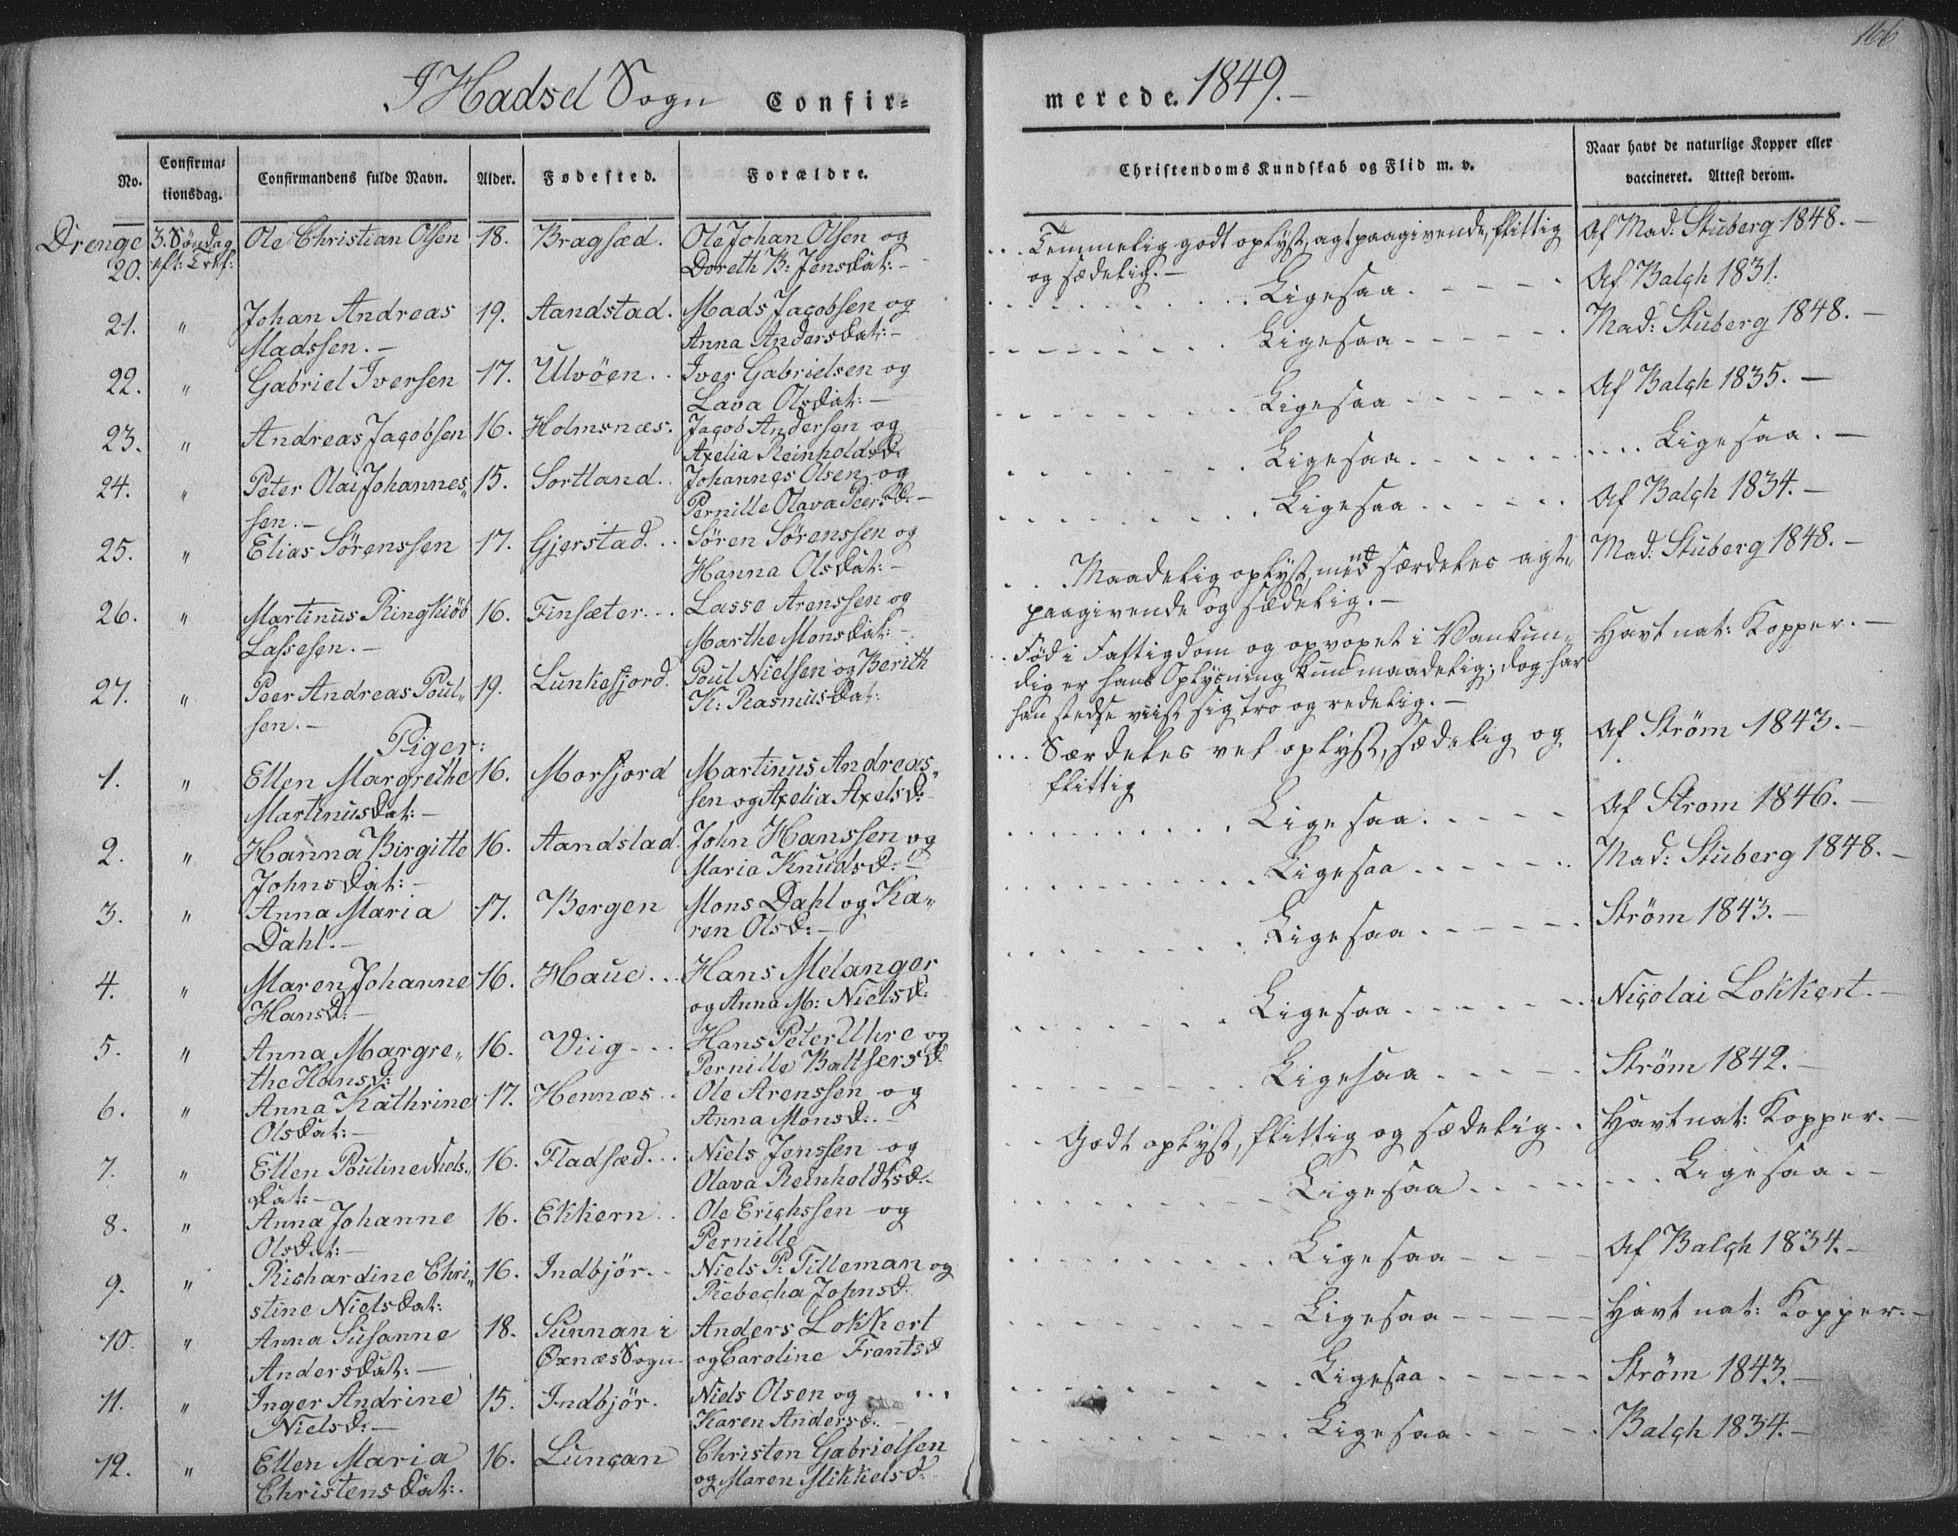 166
I Hadsel Sogn Confir-
merede. 1849.-
No.
Confirma-
tionsdag.
Confirmandens fulde Navn.
Alder.
Fødested.
Forældre.
Christendoms Kundskab og Flid m. v.
Naar havt de naturlige Kopper eller
vaccineret. Attest derom.
Drenge 3. Søndag Ole Christian Olsen 18. Bragsæd. Ole Johan Olsen og
20. eft: Tref: Doreth B: Jensdat:-
21. " Johan Andreas 19. Aandstad. Mads Jacobsen og
Madssen.- Anna Andersdat:-
22. " Gabriel Iversen 17. Ulvöen.. Iver Gabrielsen og
Lava Olsdat:-
23. " Andreas Jacobsen 16. Holmsnæs. Jacob Andersen og
Axelia Reinholdsd.
24. " Peter Olai Johannes- 15. Sortland.. Johannes Olsen og
sen.- Pernille Olava Peersd.-
25. " Elias Sørenssen 17. Gjerstad... Søren Sørenssen og
Hanna Olsdat:-
26. " Martinus Ringkiöb 16. Finsæter... Lasse Arenssen og
Lassesen.- Marthe Monsdat:-
27. " Peer Andreas Poul- 19. Lunkefjord. Poul Nielsen og Berith
sen.- K: Rasmusdat:
Piger:
1. " Ellen Margrethe 16. Morfjord Martinus Andreas-
Martinusdat:- sen og Axelia Axelsd:-
2. " Hanna Birgitte 16. Aandstad. John Hanssen og
Johnsdat:- Maria Knudsd:-
3. " Anna Maria 17. Bergen Mons Dahl og Ka-
Dahl.- ren Olsd:-
4. " Maren Johanne 16. Haue... Hans Melanger
Hansd:- og Anna M: Nielsd:
5. " Anna Margre- 16. Viig... Hans Peter Uhre og
the Hansd: Pernille Balthersd
6. " Anna Kathrine 17. Hennæs.. Ole Arenssen og
Olsdat:- Anna Monsd:-
7. " Ellen Pouline Niels- 16. Fladsæd... Niels Jenssen og
dat:- Olava Reinholdtsd:-
8. " Anna Johanne 16. Ekkern.. Ole Erichssen og
Olsdat:- Pernille
9. " Richardine Chri- 16. Indbjör.. Niels P: Tilleman og
stine Nielsdat: Rebecha Johnsd:
10. " Anna Susanne 18. Sunnan i Anders Lokkert
Andersdat:- Øxnæs Sogn. og Caroline Frantsd
11. " Inger Andrine 15. Indbjör. Niels Olsen og ...
Nielsd:- Karen Andersd.-
12. " Ellen Maria 16. Luncan Christen Gabrielsen
Christensdat:. og Maren Mikkelsd:
... Temmelig godt oplyst, agtpaagivende, flittig Af Mad: Stuberg 1848.-
og sædelig.-
Ligesaa. Af Balch 1831.
Ligesaa Mad: Stuberg 1848.-
Ligesaa Af Balch 1835.-
Ligesaa. .... Ligesaa.-
Ligesaa Af Balch 1834.-
.. Maadelig oplyst, men særdeles agt- Mad: Stuberg 1848.-
paagivende og sædelig.-
.. Fød i Fattigdom og opvoxet i Vankun- Havt nat: Kopper.-
dig er hans Oplysning kun maadelig; dog har
han stedse viist sig tro og redelig.-
... Særdeles vel oplyst, sædelig og Af Ström 1843.-
flittig
Ligesaa. Af Strom 1846.-
Ligesaa Mad: Stuberg 1848.-
Ligesaa Ström 1843.-
Ligesaa Nicolai Lokkert.-
Ligesaa Ström 1842.-
.. Godt oplyst, flittig og sædelig.. Havt nat: Kopper.-
Ligesaa ... Ligesaa.-
Ligesaa Af Balch 1834.-
Ligesaa Havt nat: Kopper.-
Ligesaa Ström 1843.-
Ligesaa Balch 1834.-